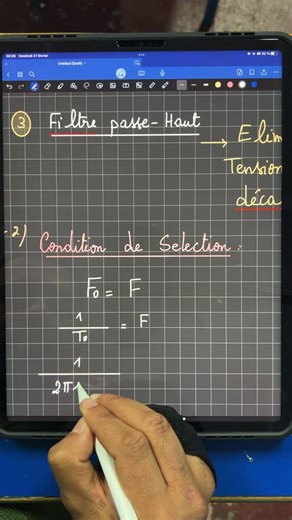 Vendredi 21 février
Untitled (Draft)
③ Filtre passe-Haut
→ Elim
Tension
déca
-2) Condition de Selection :
F₀ = F
1/T₀ = F
1/2π